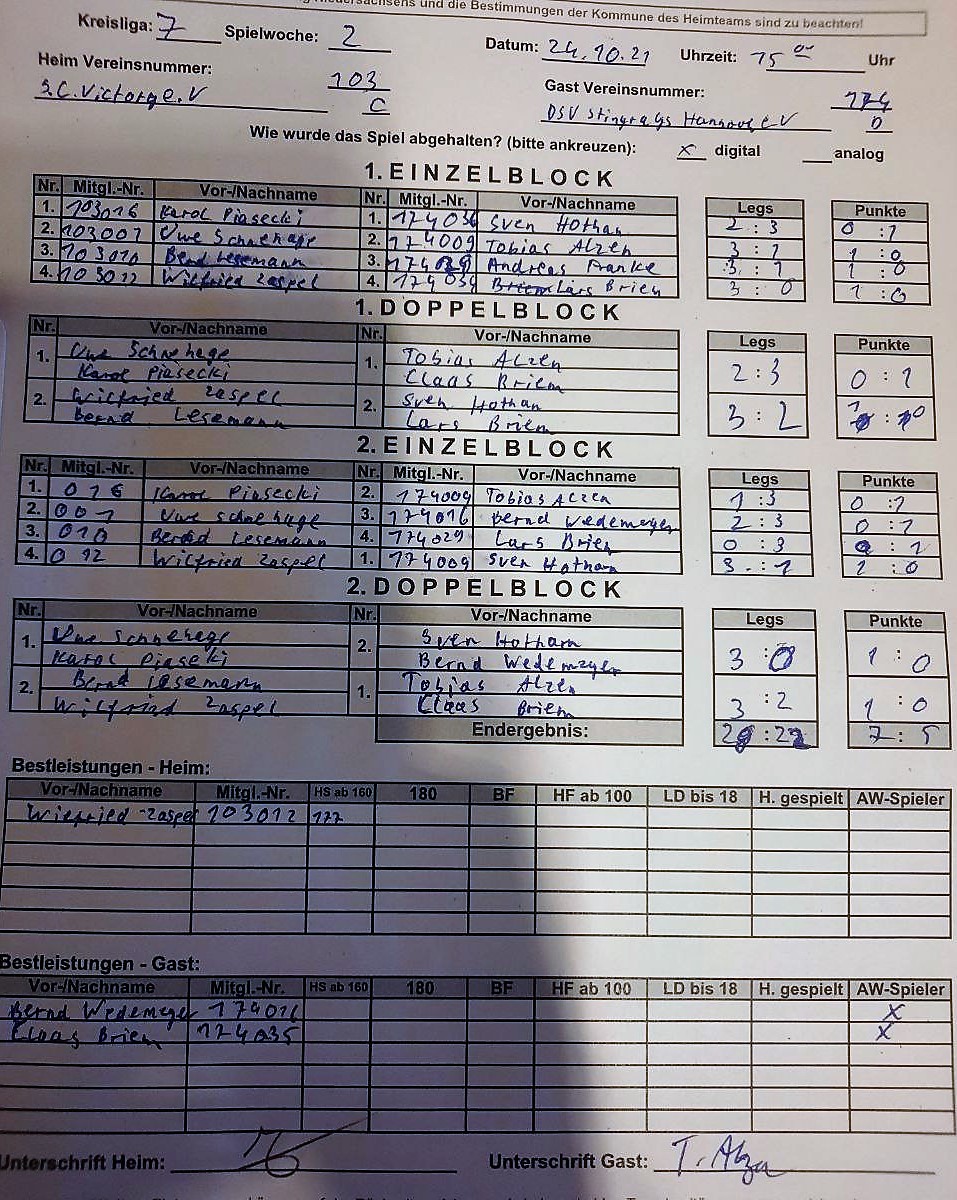 Niedersachsens und die Bestimmungen der Kommune des Heimteams sind zu beachten!
Kreisliga: 7 Spielwoche: 2 Datum: 24.10.21 Uhrzeit: 15 00 Uhr
Heim Vereinsnummer: 103 Gast Vereinsnummer: 174
S.C. Victoria e.V C DSV Stingrays Hannover e.V D
Wie wurde das Spiel abgehalten? (bitte ankreuzen): x digital analog
1. EINZELBLOCK
Nr. Mitgl.-Nr. Vor-/Nachname Nr. Mitgl.-Nr. Vor-/Nachname Legs Punkte
1. 103016 Karol Piasecki 1. 174036 Sven Hothan 2 : 3 0 : 1
2. 103001 Uwe Schnehage 2. 174009 Tobias Alzen 3 : 1 1 : 0
3. 103010 Bernd Lesemann 3. 174029 Andreas Franke 3 : 1 1 : 0
4. 103012 Wilfried Zaspel 4. 174034 Lars Briem 3 : 0 1 : 0
1. DOPPELBLOCK
Nr. Vor-/Nachname Nr. Vor-/Nachname Legs Punkte
1. Uwe Schnehege 1. Tobias Alzen 2 : 3 0 : 1
Karol Piasecki Claas Briem
2. Wilfried Zaspel 2. Sven Hothan 3 : 2 1 : 0
Bernd Lesemann Lars Briem
2. EINZELBLOCK
Nr. Mitgl.-Nr. Vor-/Nachname Nr. Mitgl.-Nr. Vor-/Nachname Legs Punkte
1. 016 Karol Piasecki 2. 174009 Tobias Alzen 1 : 3 0 : 1
2. 001 Uwe Schnehage 3. 174016 Bernd Wedemeyer 2 : 3 0 : 1
3. 010 Bernd Lesemann 4. 174029 Lars Briem 0 : 3 0 : 1
4. 012 Wilfried Zaspel 1. 174009 Sven Hothan 3 : 1 1 : 0
2. DOPPELBLOCK
Nr. Vor-/Nachname Nr. Vor-/Nachname Legs Punkte
1. Uwe Schnehege 2. Sven Hothan 3 : 0 1 : 0
Karol Piaseki Bernd Wedemeyer
2. Bernd Lesemann 1. Tobias Alzen 3 : 2 1 : 0
Wilfried Zaspel Claas Briem
Endergebnis: 7 : 5
Bestleistungen - Heim:
Vor-/Nachname Mitgl.-Nr. HS ab 160 180 BF HF ab 100 LD bis 18 H. gespielt AW-Spieler
Wilfried Zaspel 103012 177
Bestleistungen - Gast:
Vor-/Nachname Mitgl.-Nr. HS ab 160 180 BF HF ab 100 LD bis 18 H. gespielt AW-Spieler
Bernd Wedemeyer 174016 x
Claas Briem 174035 x
Unterschrift Heim: Unterschrift Gast: T. Alzen